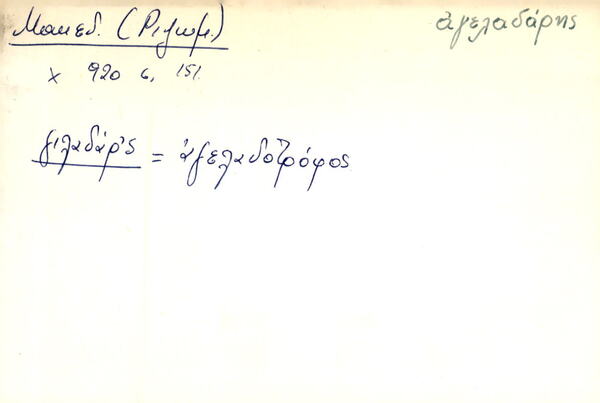 Μακεδ. (Ριζωμ.) ἀγελαδάρης
χ 920 σ. 151.
γιλαδάρ'ς = ἀγελαδοτρόφος